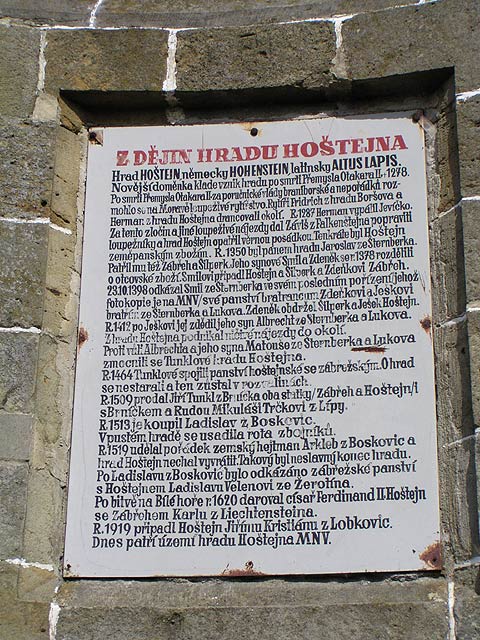 Z DĚJIN HRADU HOŠTEJNA
Hrad HOŠTEIN, německy HOHENSTEIN, latinsky ALTUS LAPIS.
Novější doměnka klade vznik hradu po smrti Přemysla Otakara II. r. 1278.
Po smrti Přemysla Otakara II. za poručnické vlády braniborské a nepořádků roz-
mohlo se na Moravě loupeživé rytířstvo. Rytíři Fridrich z hradu Boršova a
Herman z hradu Hoštejna drancovali okolí. R. 1287 Herman vypálil Jevíčko.
Za tento zločin a jiné loupeživé nájezdy dal Záviš z Falkenštejna popraviti
loupežníky a hrad Hoštejn opatřil věrnou posádkou. Tenkráte byl Hoštejn
zeměpanským zbožím. R. 1350 byl pánem hradu Jaroslav ze Šternberka.
Patřil mu též Zábřeh a Šilperk. Jeho synové Smil a Zdeněk se r. 1378 rozdělili
o otcovské zboží. Smilovi připadl Hoštejn a Šilperk a Zdeňkovi Zábřeh.
23.10.1398 odkázal Smil ze Šternberka ve svém posledním pořízení, jehož
fotokopie je na MNV/své panství bratrancům Zdeňkovi a Ješkovi
bratřím ze Šternberka a Lukova. Zdeněk obdržel Šilperk a Ješek Hoštejn.
R. 1412 po Ješkovi jej zdědil jeho syn Albrecht ze Šternberka a Lukova.
Z hradu Hoštejna podnikal ničivé nájezdy do okolí.
Proti vůli Albrechta a jeho syna Matouše ze Šternberka a Lukova
zmocnili se Tunklové hradu Hoštejna.
R. 1464 Tunklové spojili panství hoštejnské se zábřežským. O hrad
se nestarali a ten zůstal v rozvalinách.
R. 1509 prodal Jiří Tunkl z Brníčka oba statky/Zábřeh a Hoštejn/i
s Brníčkem a Rudou Mikuláši Trčkovi z Lípy.
R. 1513 je koupil Ladislav z Boskovic.
V pustém hradě se usadila rota zbojníků.
R. 1519 udělal pořádek zemský hejtman Arkleb z Boskovic a
hrad Hoštejn nechal vyvrátit. Takový byl neslavný konec hradu.
Po Ladislavu z Boskovic bylo odkázáno zábřežské panství
s Hoštejnem Ladislavu Velenovi ze Žerotína.
Po bitvě na Bílé hoře r. 1620 daroval císař Ferdinand II. Hoštejn
se Zábřehem Karlu z Liechtensteina.
R. 1919 připadl Hoštejn Jiřímu Kristiánu z Lobkovic.
Dnes patří území hradu Hoštejna MNV.